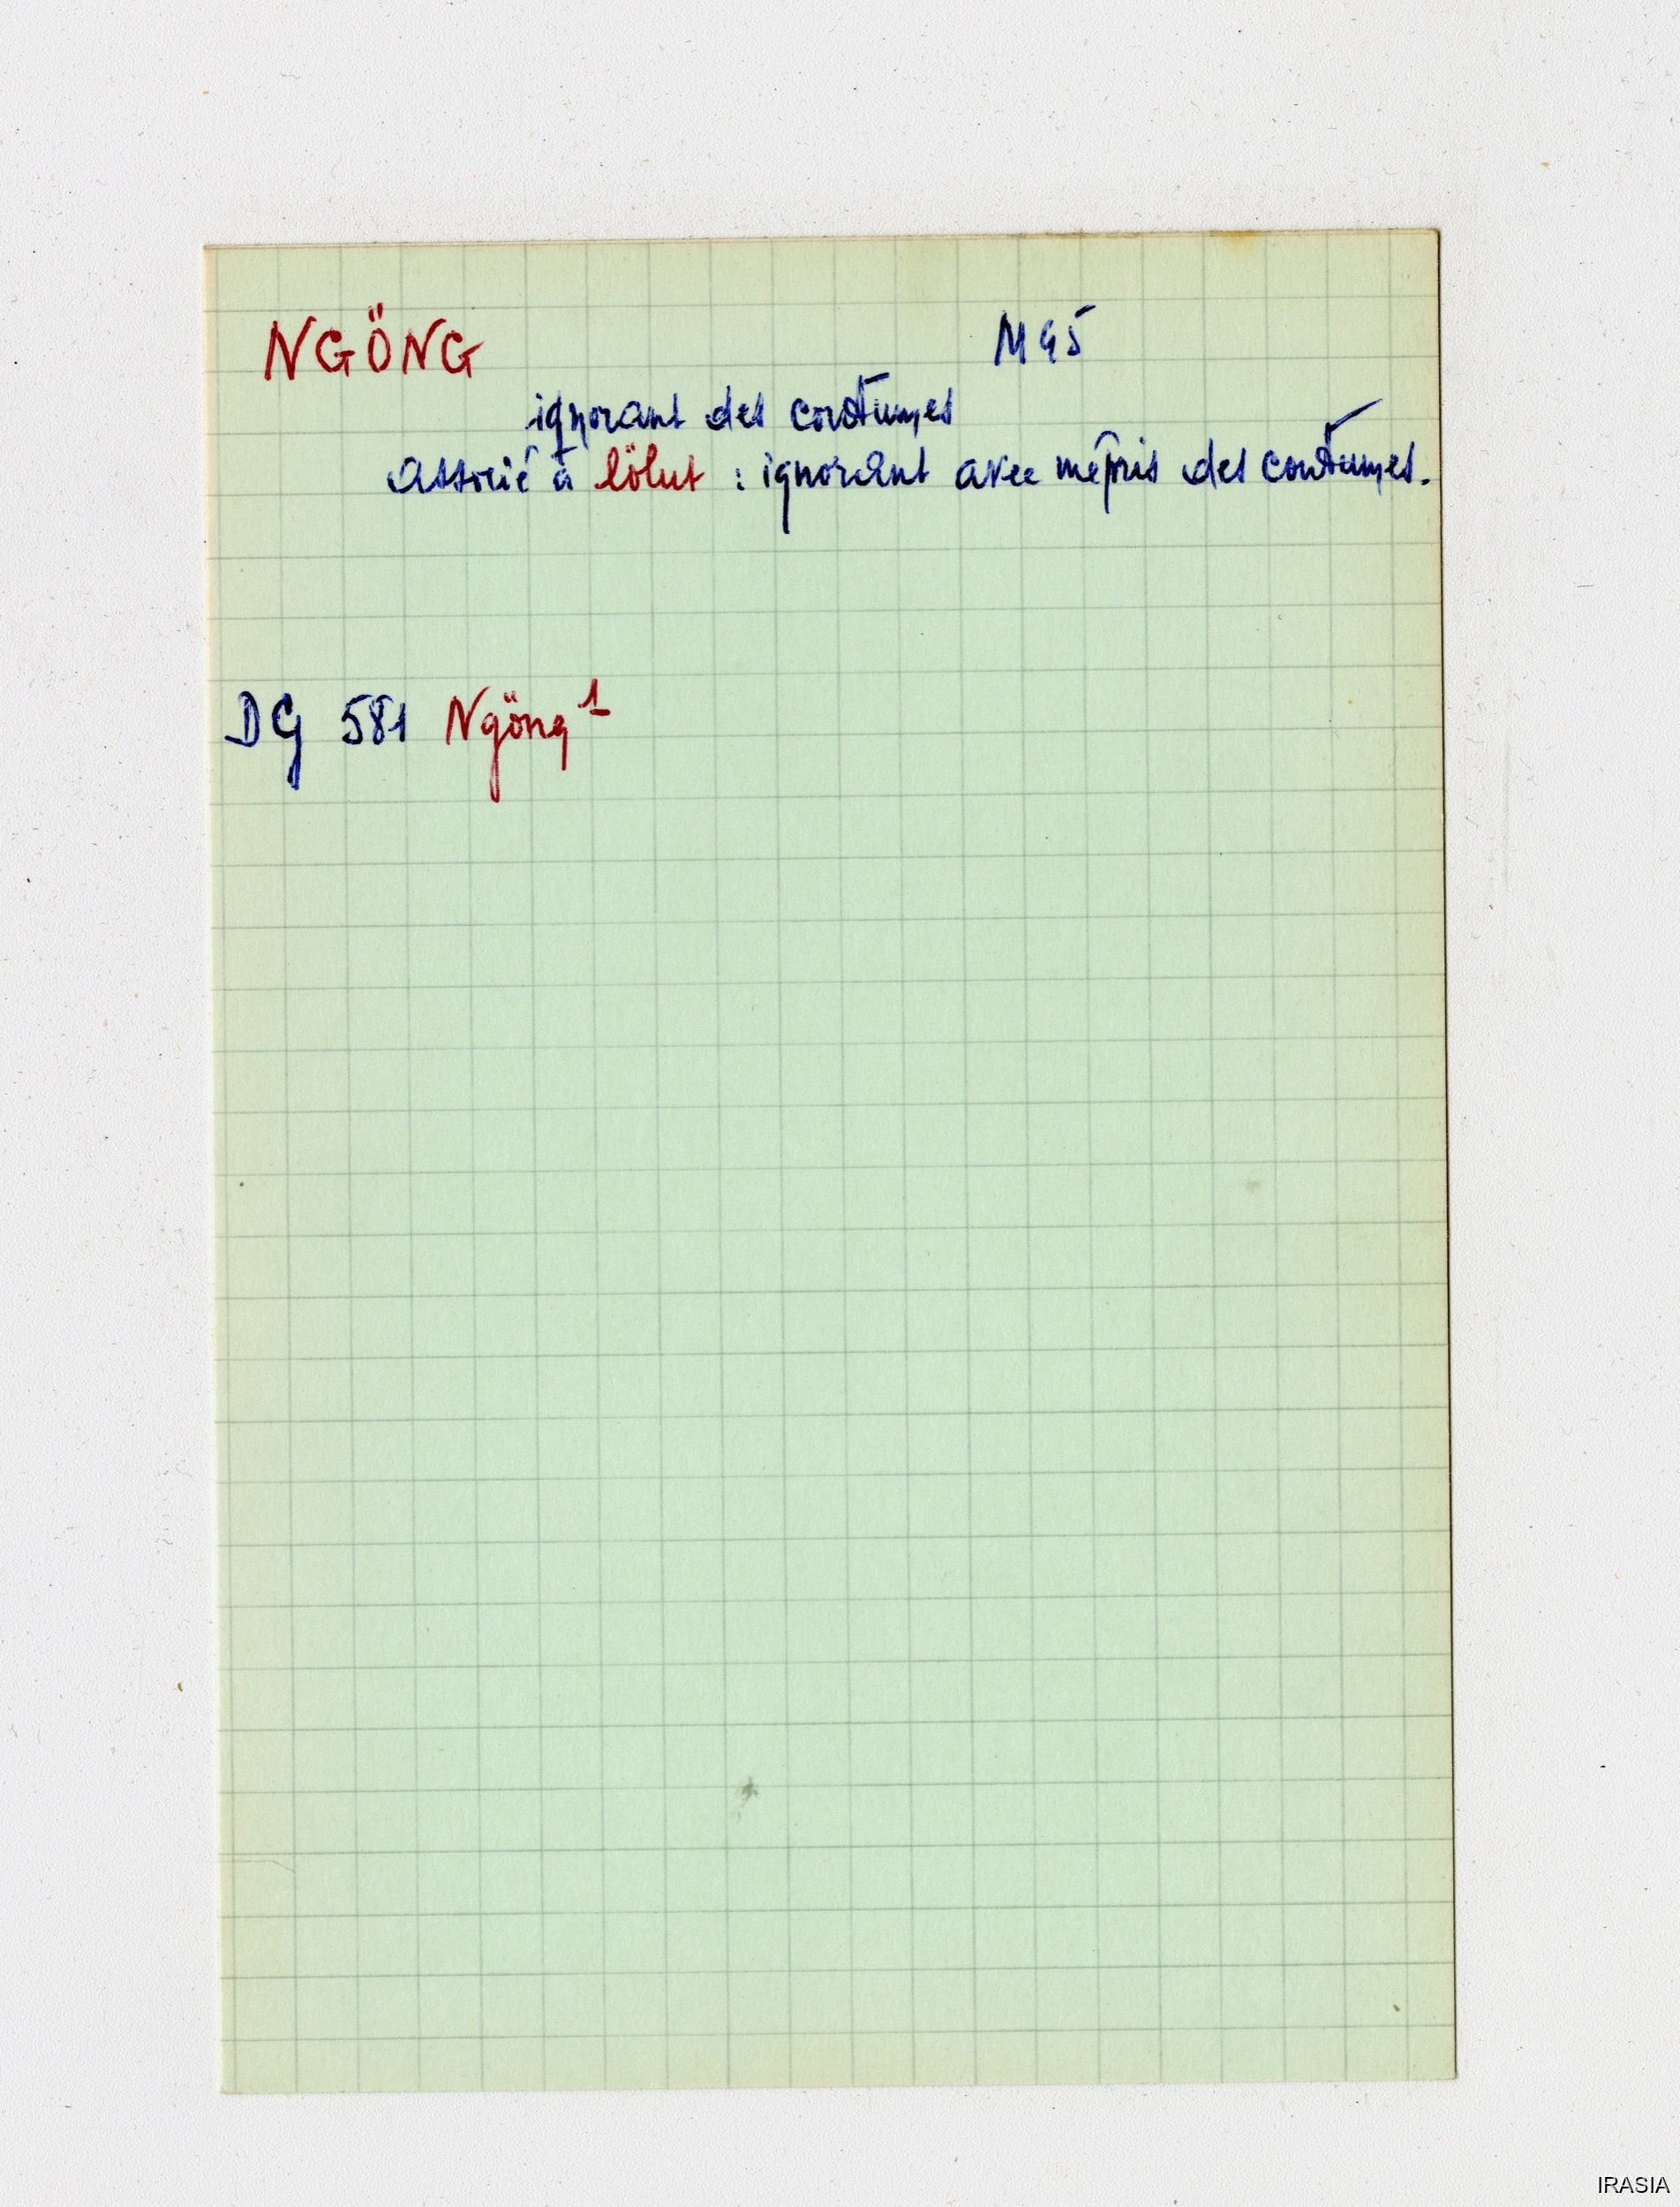 NGÖNG M 45
ignorant des coutumes
associé à lölut : ignorant avec mépris des coutumes.
DG 581 Ngöng 1
IRASIA